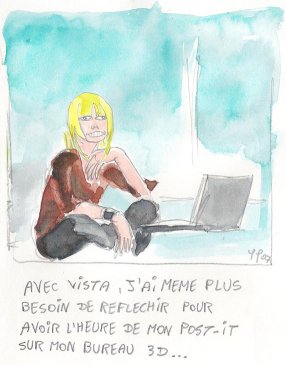 AVEC VISTA, J'AI MEME PLUS
BESOIN DE REFLECHIR POUR
AVOIR L'HEURE DE MON POST-IT
SUR MON BUREAU 3D...